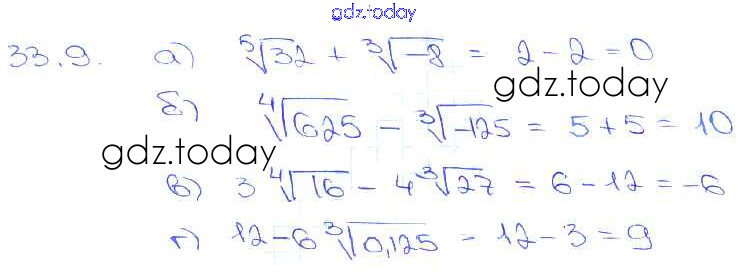 gdz.today
33.9. а) ⁵√32 + ³√-8 = 2 - 2 = 0
gdz.today
б) ⁴√625 - ³√-125 = 5 + 5 = 10
gdz.today
в) 3 ⁴√16 - 4 ³√27 = 6 - 12 = -6
г) 12 - 6 ³√0,125 = 12 - 3 = 9